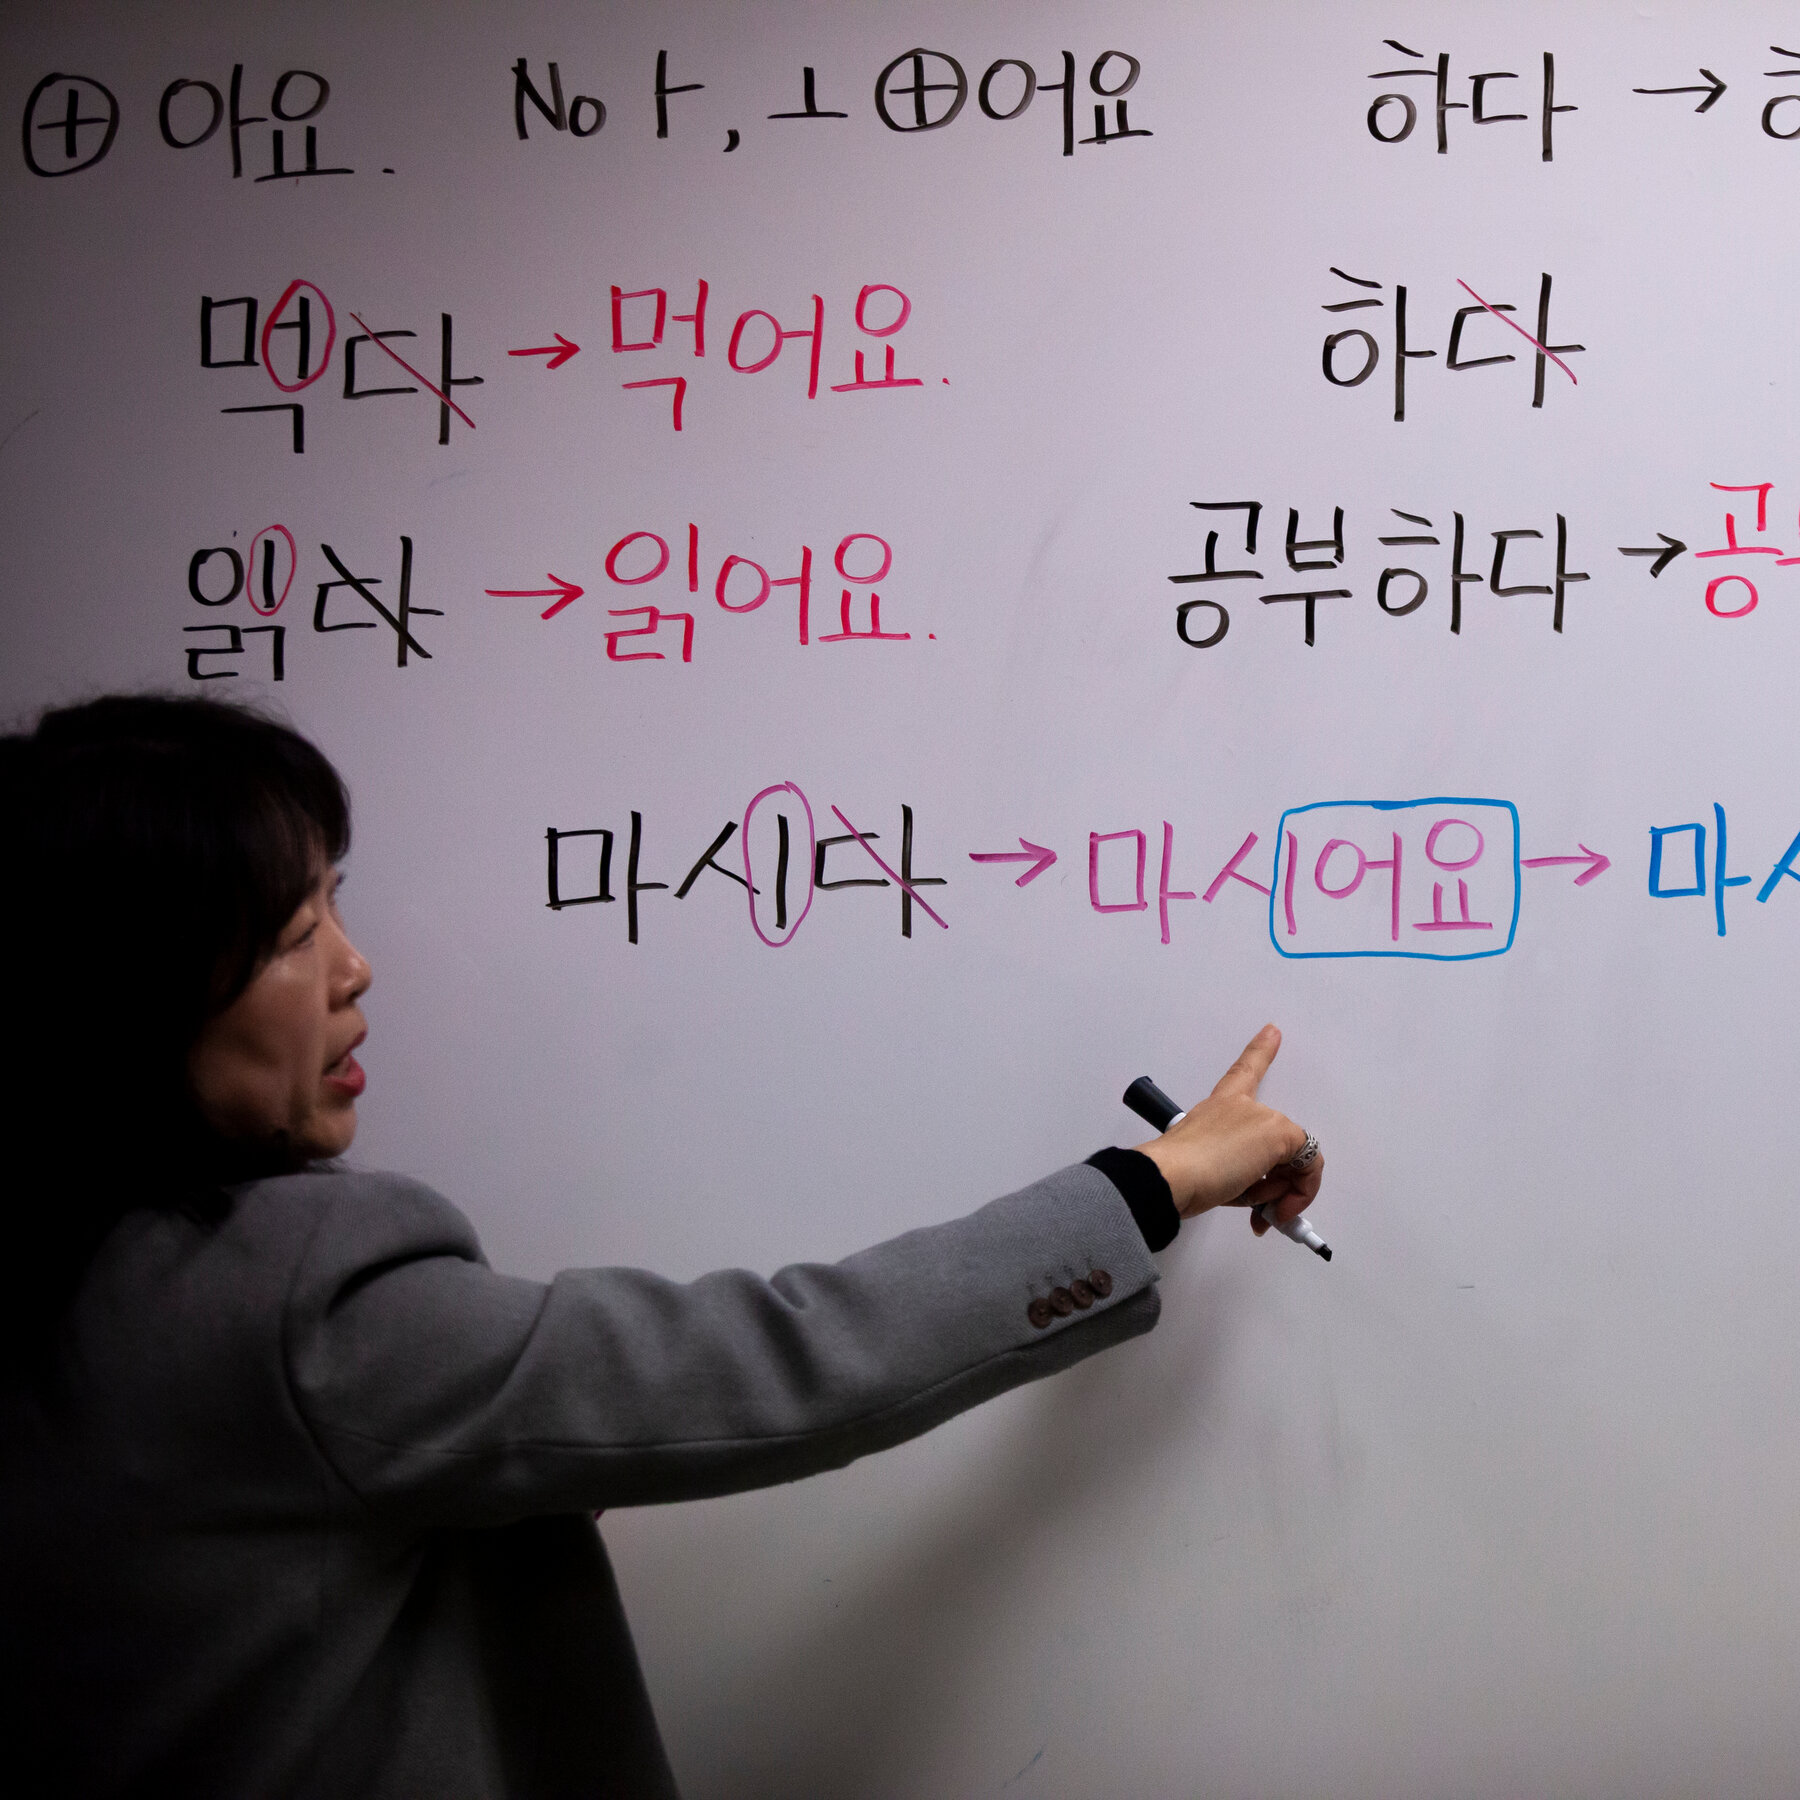 ⊕ 아요. No ㅏ, ㅗ ⊕ 어요 하다 →
먹다 → 먹어요. 하다
읽다 → 읽어요. 공부하다 → 공
마시다 → 마시어요 → 마